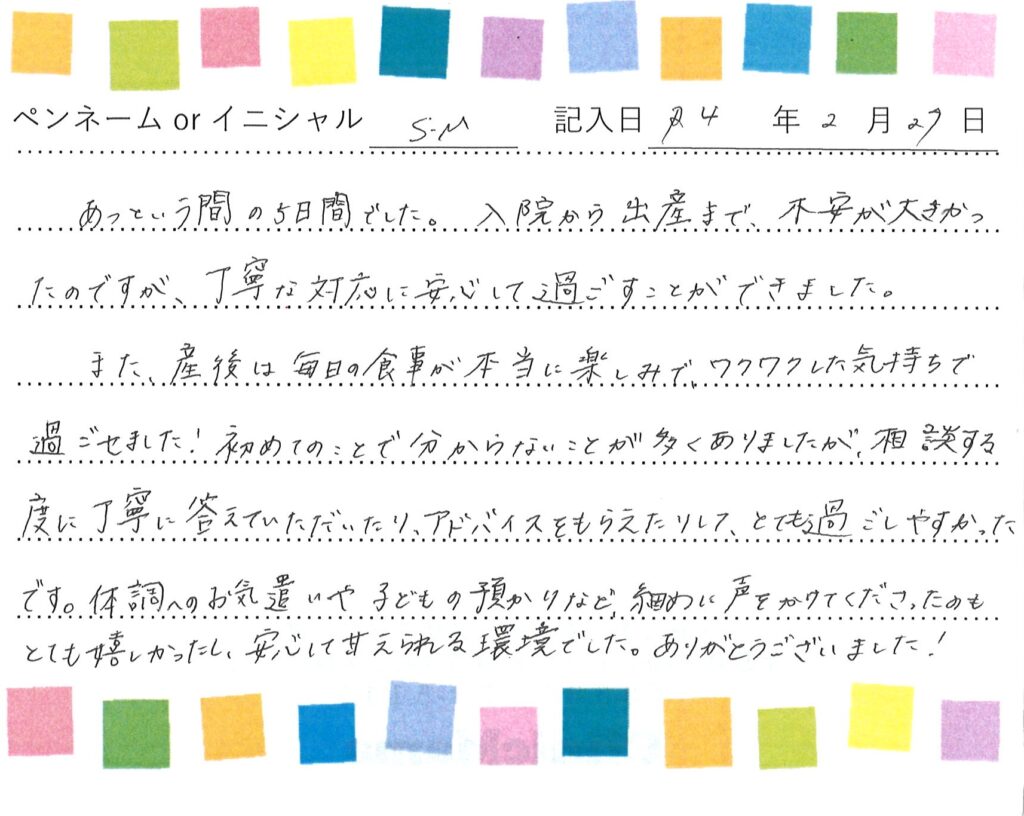 ペンネーム or イニシャル S-M 記入日 R4 年 2 月 27 日
あっという間の5日間でした。 入院から出産まで、不安が大きかっ
たのですが、丁寧な対応に安心して過ごすことができました。
また、産後は毎日の食事が本当に楽しみで、ワクワクした気持ちで
過ごせました！初めてのことで分からないことが多くありましたが、相談する
度に丁寧に答えていただいたり、アドバイスをもらえたりして、とても過ごしやすかった
です。体調へのお気遣いや子どもの預かりなど、細めに声をかけてくださったのも
とても嬉しかったし、安心して甘えられる環境でした。ありがとうございました！